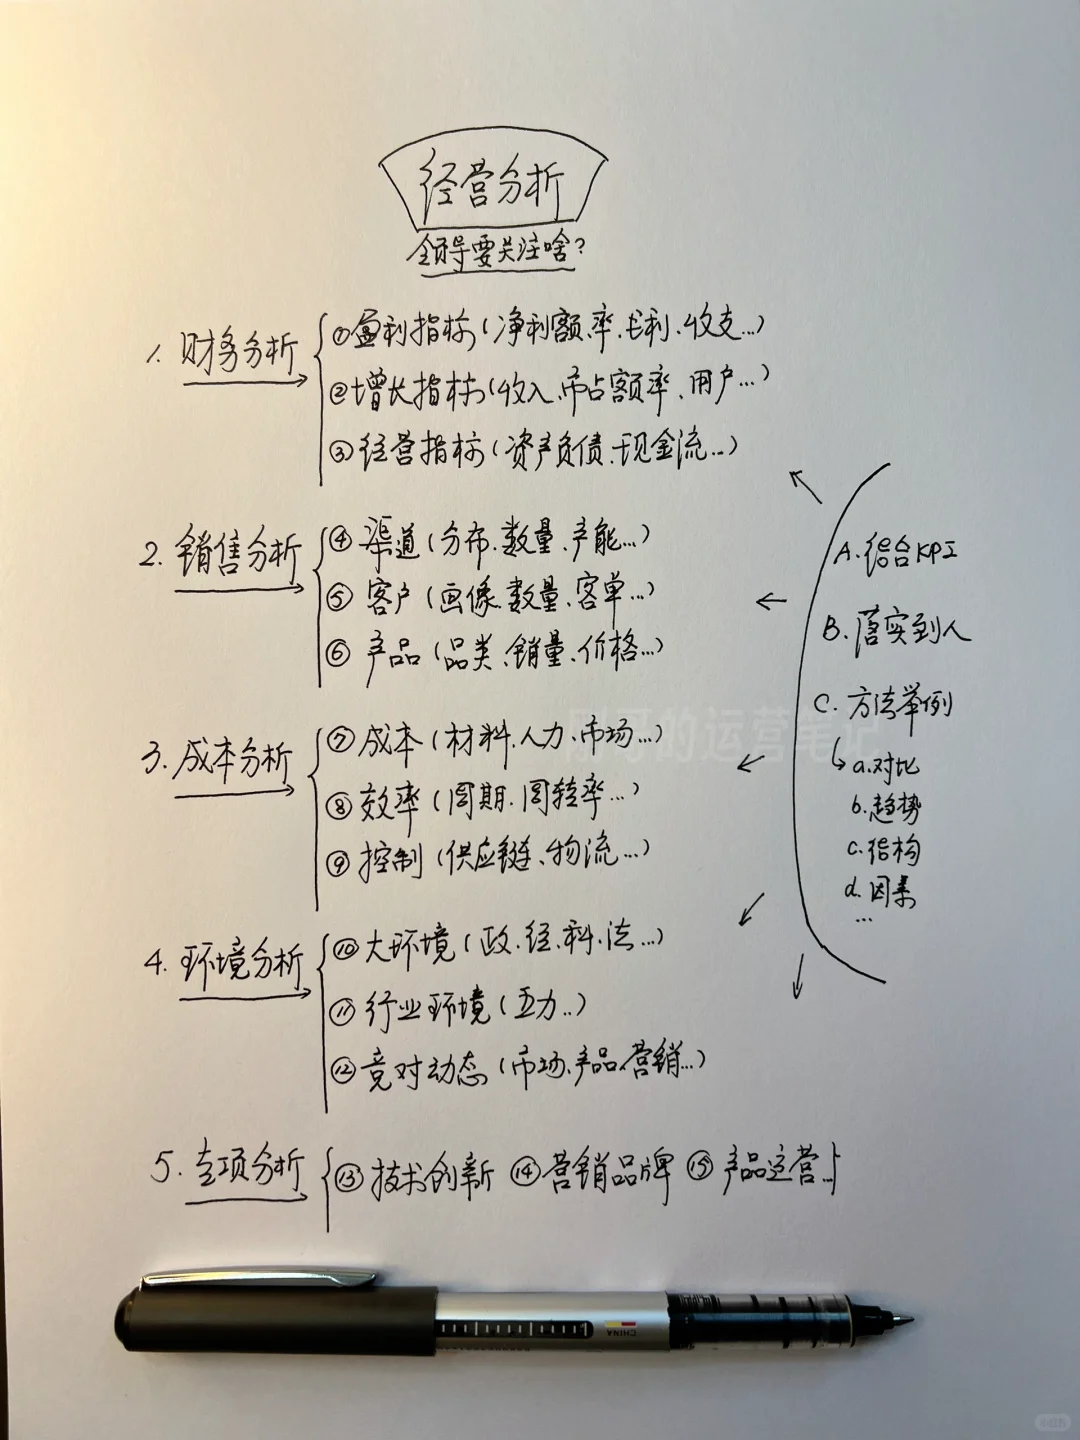 经营分析
领导要关注啥?
1. 财务分析
①盈利指标(净利额、率、毛利、收支...)
②增长指标(收入、市占额率、用户...)
③经营指标(资产负债、现金流...)
2. 销售分析
④渠道(分布、数量、产能...)
⑤客户(画像、数量、客单...)
⑥产品(品类、销量、价格...)
3. 成本分析
⑦成本(材料、人力、市场...)
⑧效率(周期、周转率...)
⑨控制(供应链、物流...)
4. 环境分析
⑩大环境(政、经、科、法...)
⑪行业环境(五力..)
⑫竞对动态(市场、产品、营销...)
5. 专项分析
⑬技术创新 ⑭营销品牌 ⑮产品运营...
A. 结合KPI
B. 落实到人
C. 方法举例
a. 对比
b. 趋势
c. 结构
d. 因素
...
哥的运营笔记
CHINA
小红书